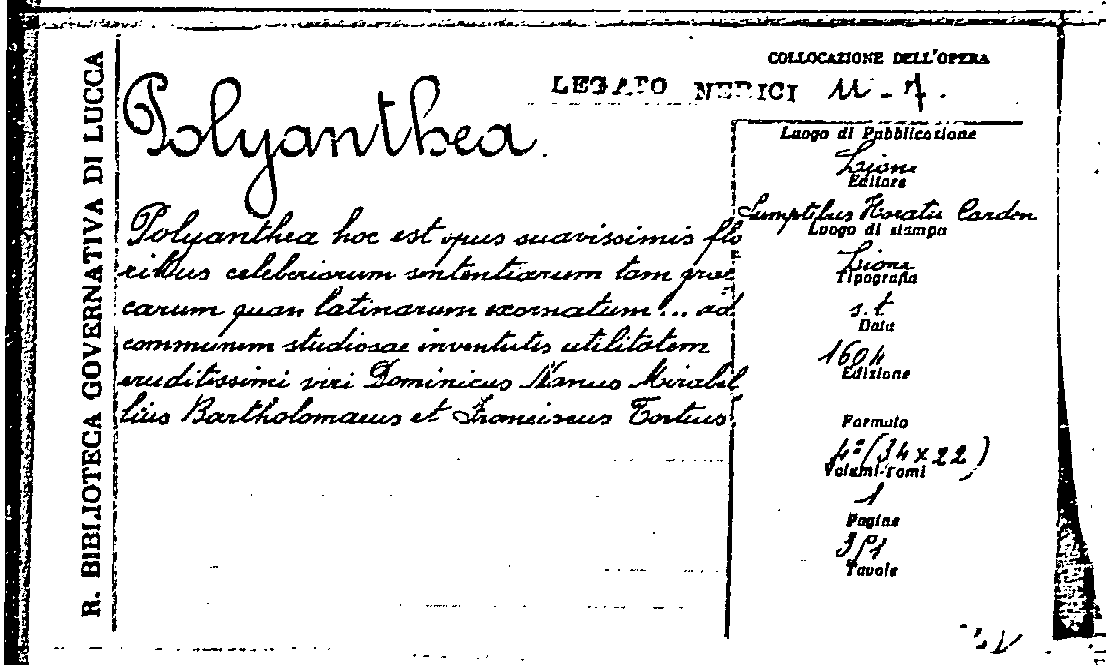 R. BIBLIOTECA GOVERNATIVA DI LUCCA
COLLOCAZIONE DELL'OPERA
LEGATO NERICI 11-7.
Polyanthea.
Polyanthea hoc est opus suavissimis flo
ribus celeberiorum sententiarum tam græ
carum quan latinarum exornatum... ad
communem studiosae inventutis utilitatem
eruditissimi viri Dominicus Nanus Mirabel
lius Bartholomaeus et Franciscus Tortius.
Luogo di Pubblicazione
Lione
Editore
Sumptibus Horatii Cardon
Luogo di stampa
Lione
Tipografia
s.t
Data
1604
Edizione
Formato
4º (34x22)
Volumi-Tomi
1
Pagine
Tavole